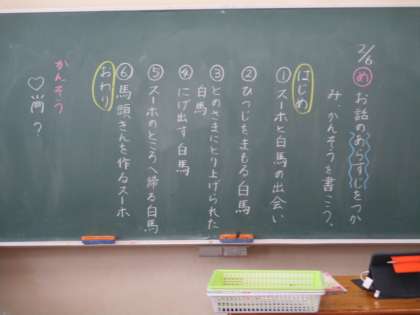 2/6
め お話のあらすじをつか
み、かんそうを書こう。
はじめ
① スーホと白馬の出会い
② ひつじをまもる白馬
③ とのさまにとり上げられた
白馬
④ にげ出す白馬
⑤ スーホのところへ帰る白馬
⑥ 馬頭きんを作るスーホ
おわり
かんそう
♡
？